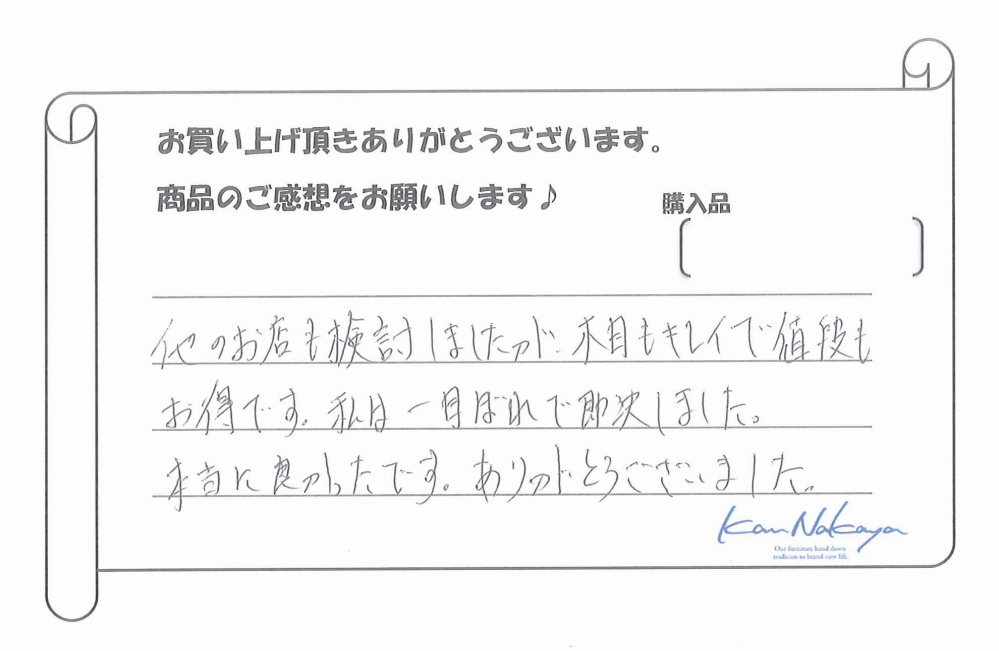 お買い上げ頂きありがとうございます。
商品のご感想をお願いします♪
購入品
他のお店も検討しましたが、木目もキレイで値段も
お得です。私は一目ぼれで即決しました。
本当に良かったです。ありがとうございました。
Kan Nakaya
Our furniture hand down
tradition to brand-new life.